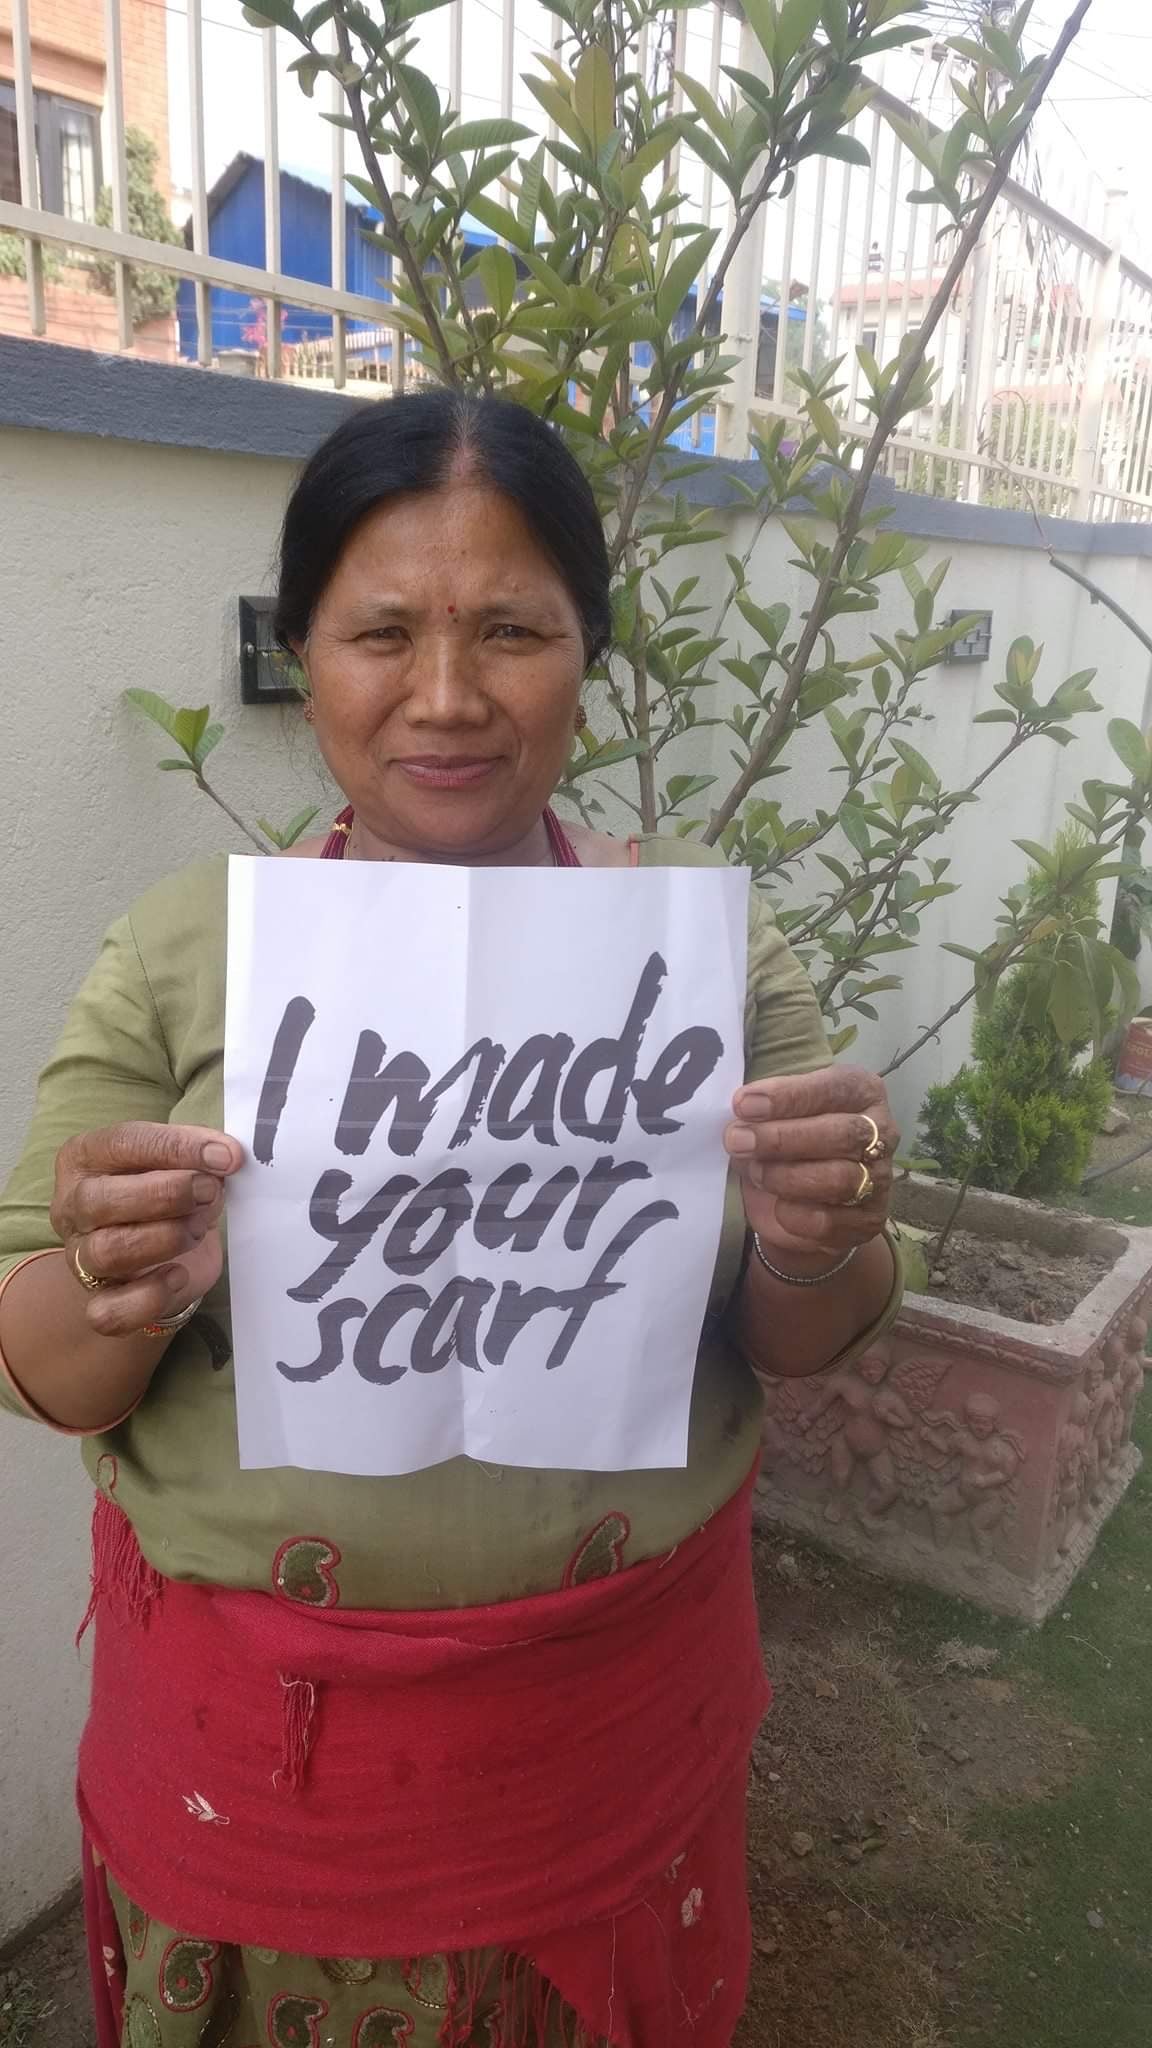 I made
your
scarf